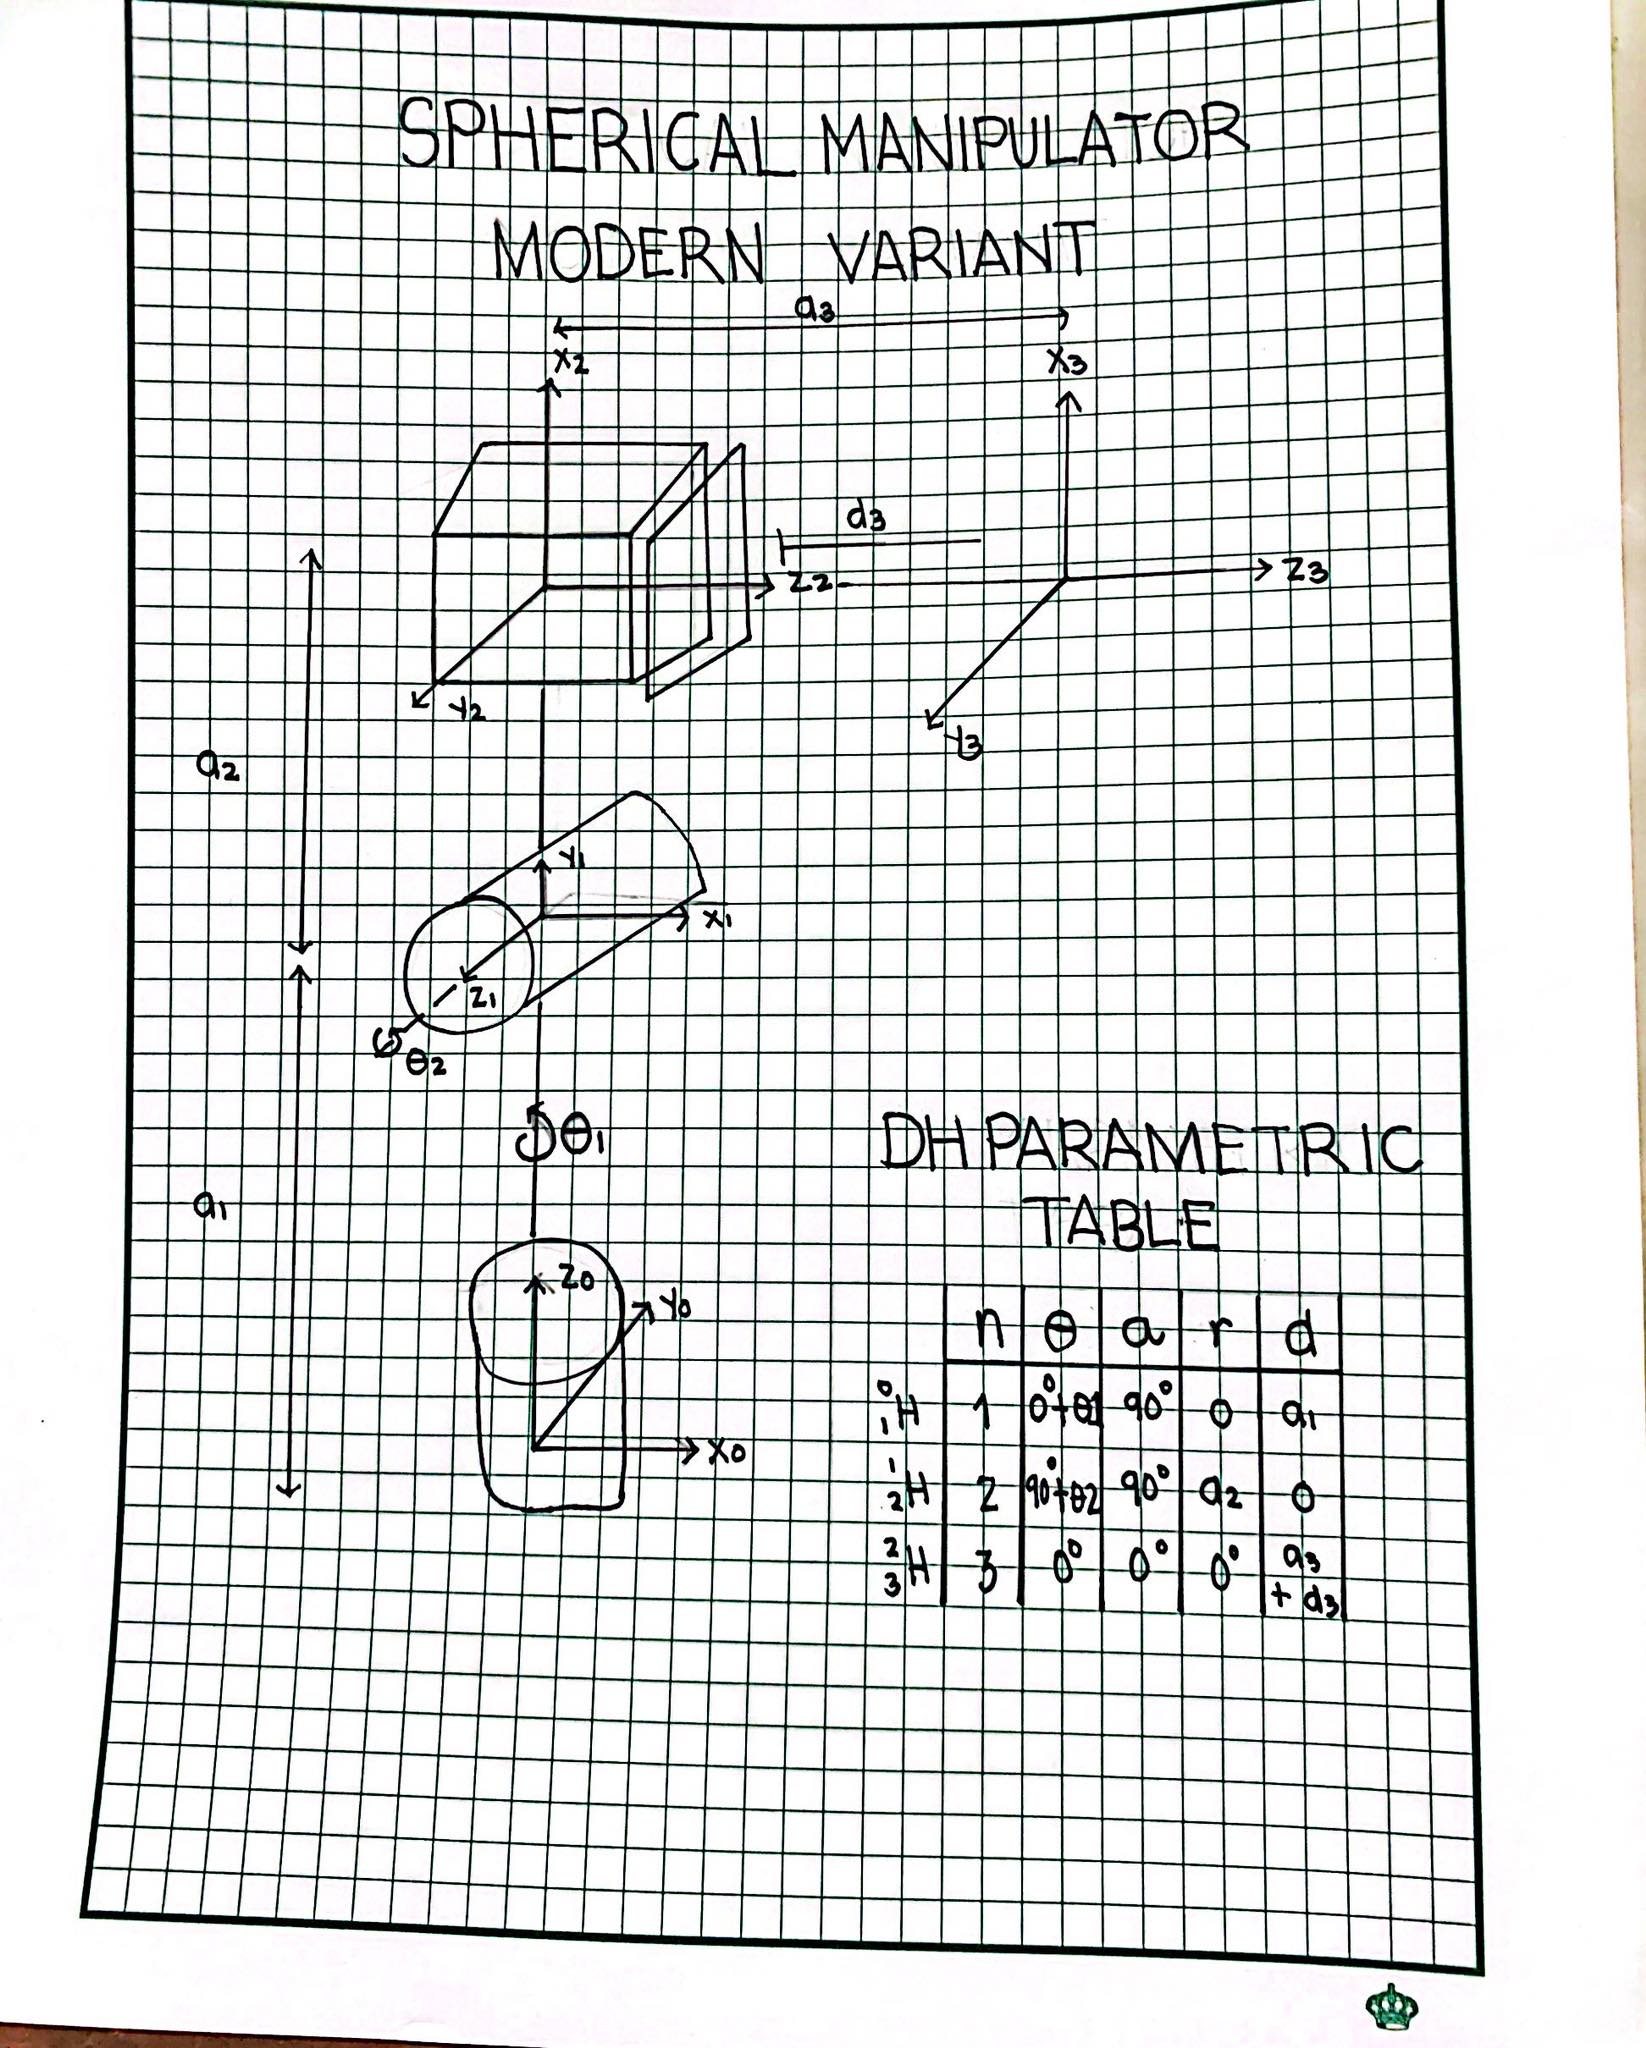 SPHERICAL MANIPULATOR
MODERN VARIANT
a3
X2
X3
d3
Z2
Z3
Y2
Y3
a2
Y1
X1
Z1
θ2
θ1
DH PARAMETRIC
TABLE
a1
Z0
Y0
X0
n θ α r d
⁰₁H 1 0°+θ1 90° 0 a1
¹₂H 2 90°+θ2 90° a2 0
²₃H 3 0° 0° 0° a3
+ d3